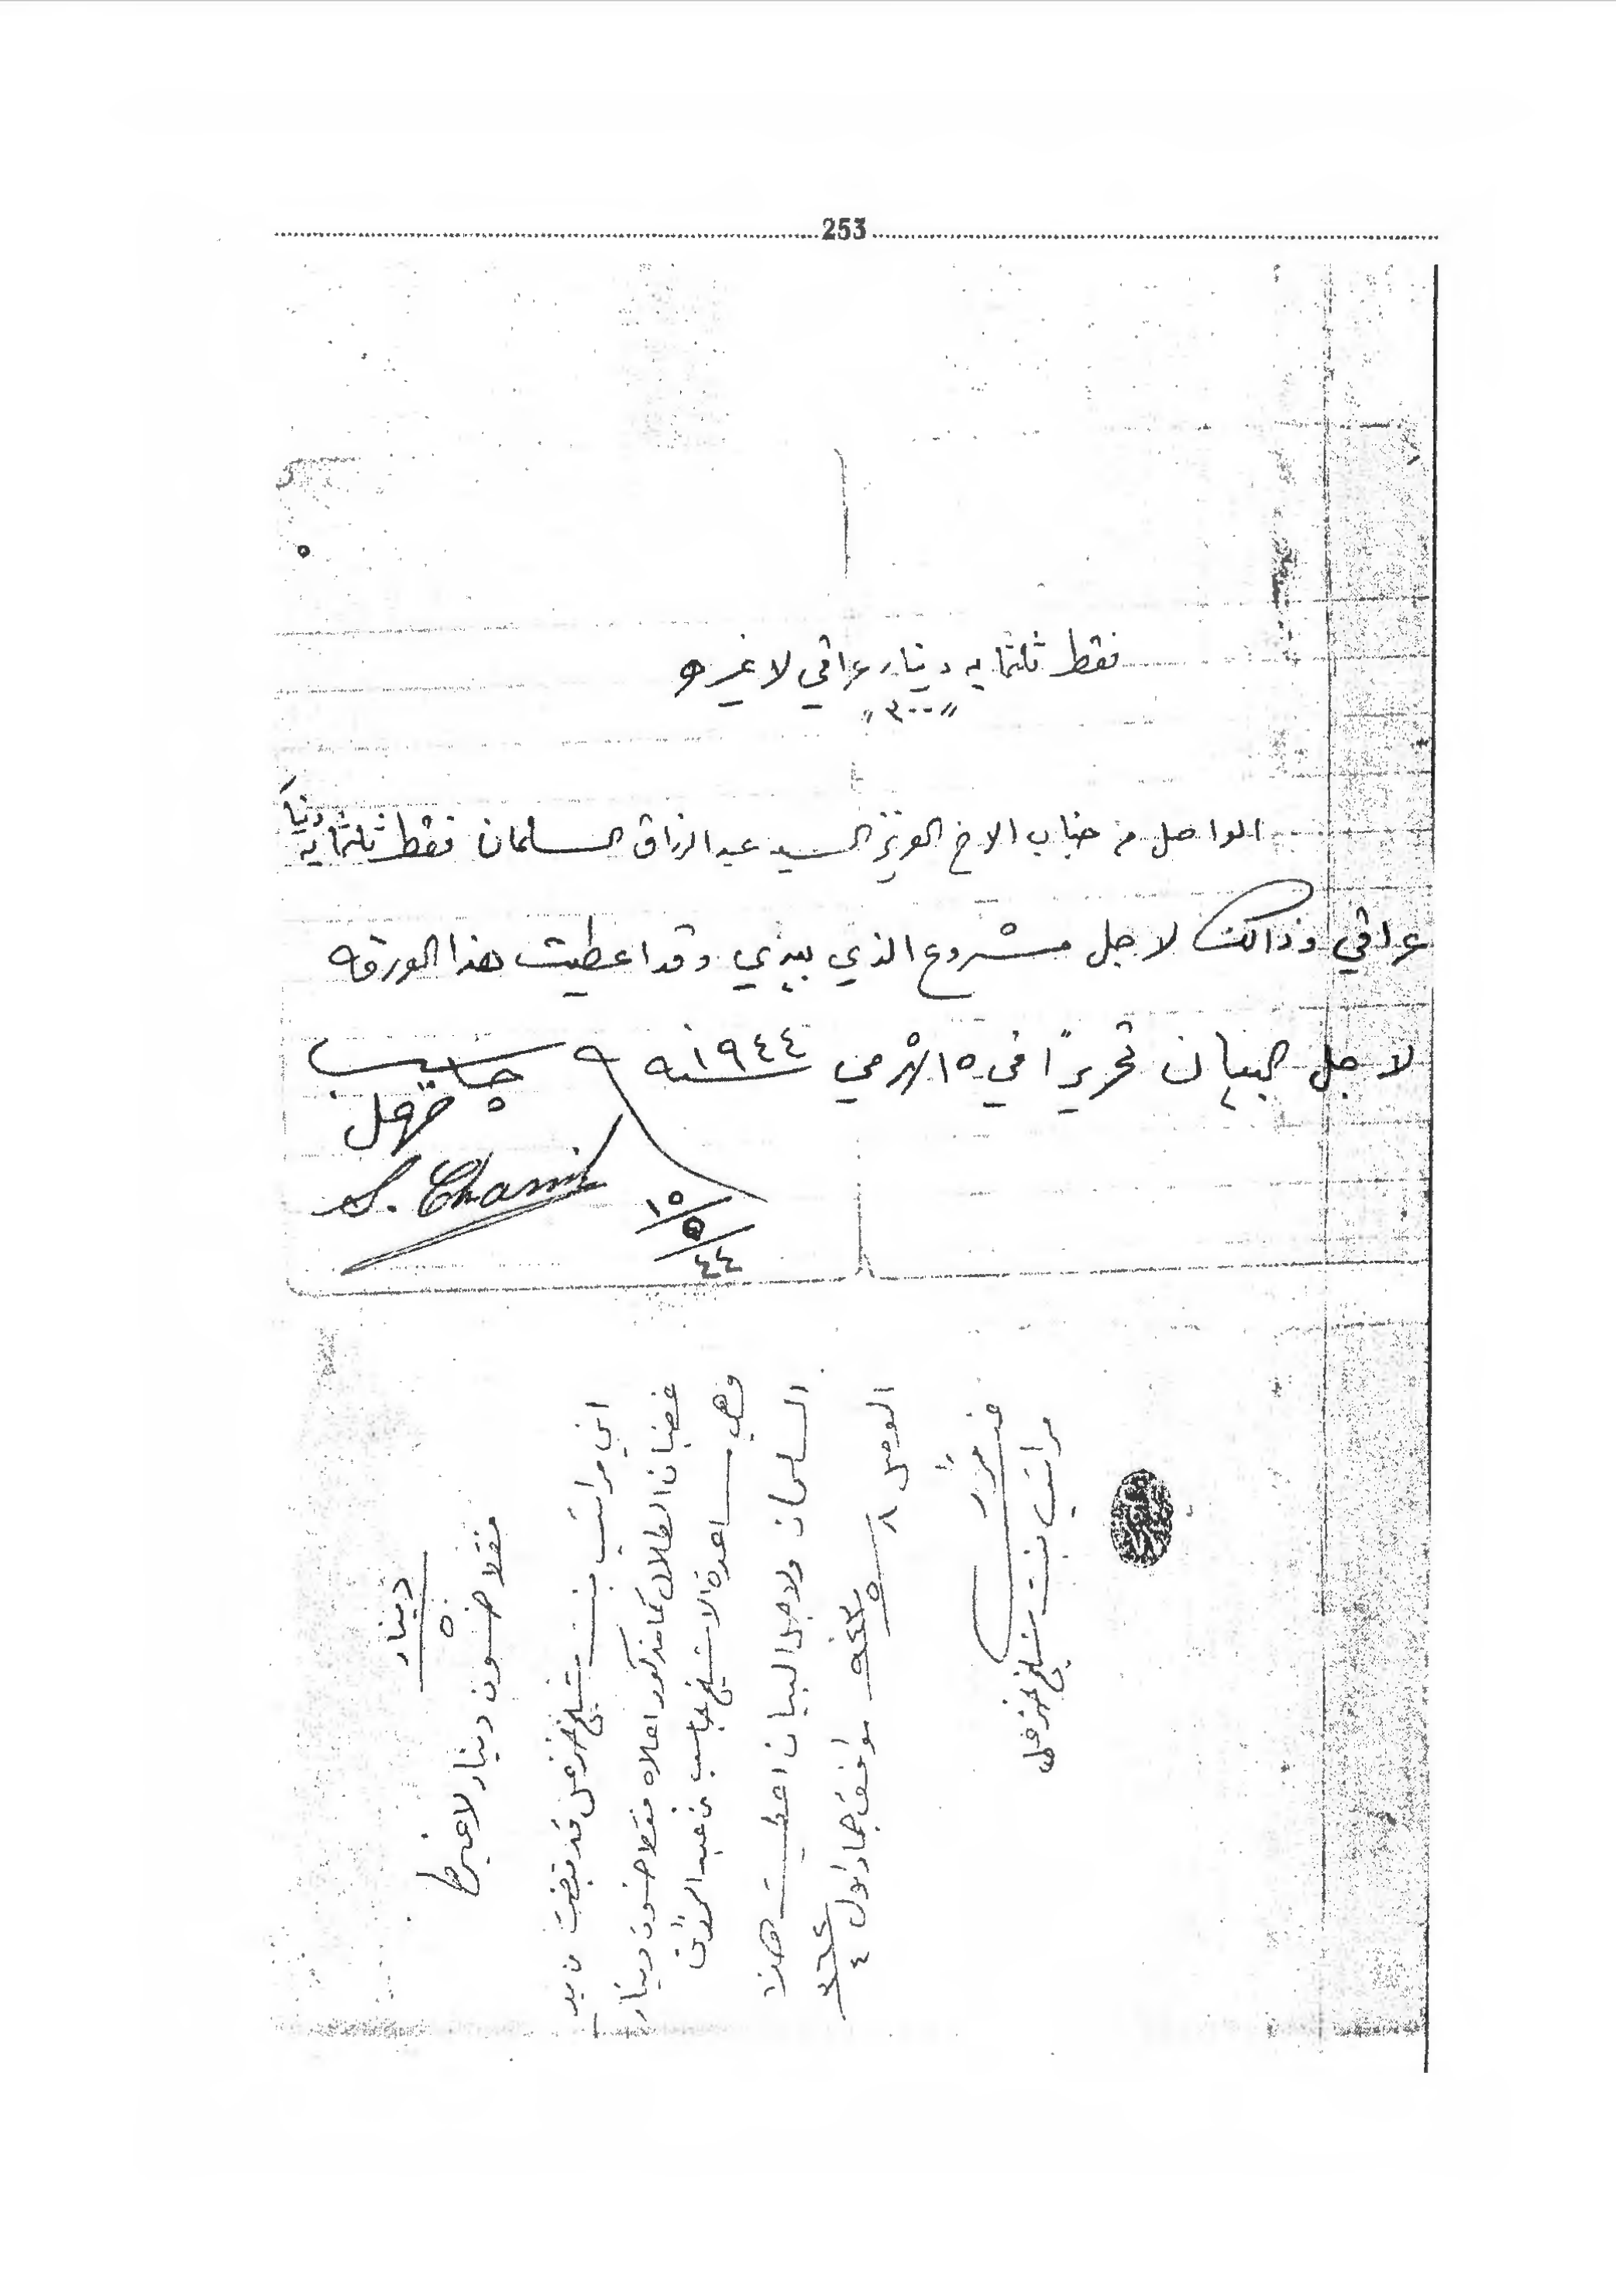 253
فقط ثلثمايه دينار عراقي لا غيره
"٣٠٠"
الواصل من جناب الاخ العزيز السيد عبد الرزاق السلمان فقط ثلثمايه دينار
عراقي وذالك لاجل مشروع الذي بيدي وقد اعطيت هذا الورقه
لاجل البيان تحريرًا في ١٥ شهر مي سنه ١٩٤٤
جاسب
خزعل
١٥
٥
٤٤
دينار
٥٠
فقط خمسون دينار لا غير
اني مراتب بنت شيخ خزعل قد قبضت من يد
غضبان الطلال كما مذكور اعلاه فقط خمسون دينار
وهي مساعدة الاشيخ جاسب من عبد الرزاق
السلمان ولاجل البيان اعطيت هذا
الوصل ٨ ٥ ٩٤٣ موافق جماد اول ٤
٣٦٢
مراتب بنت شيخ خزعل